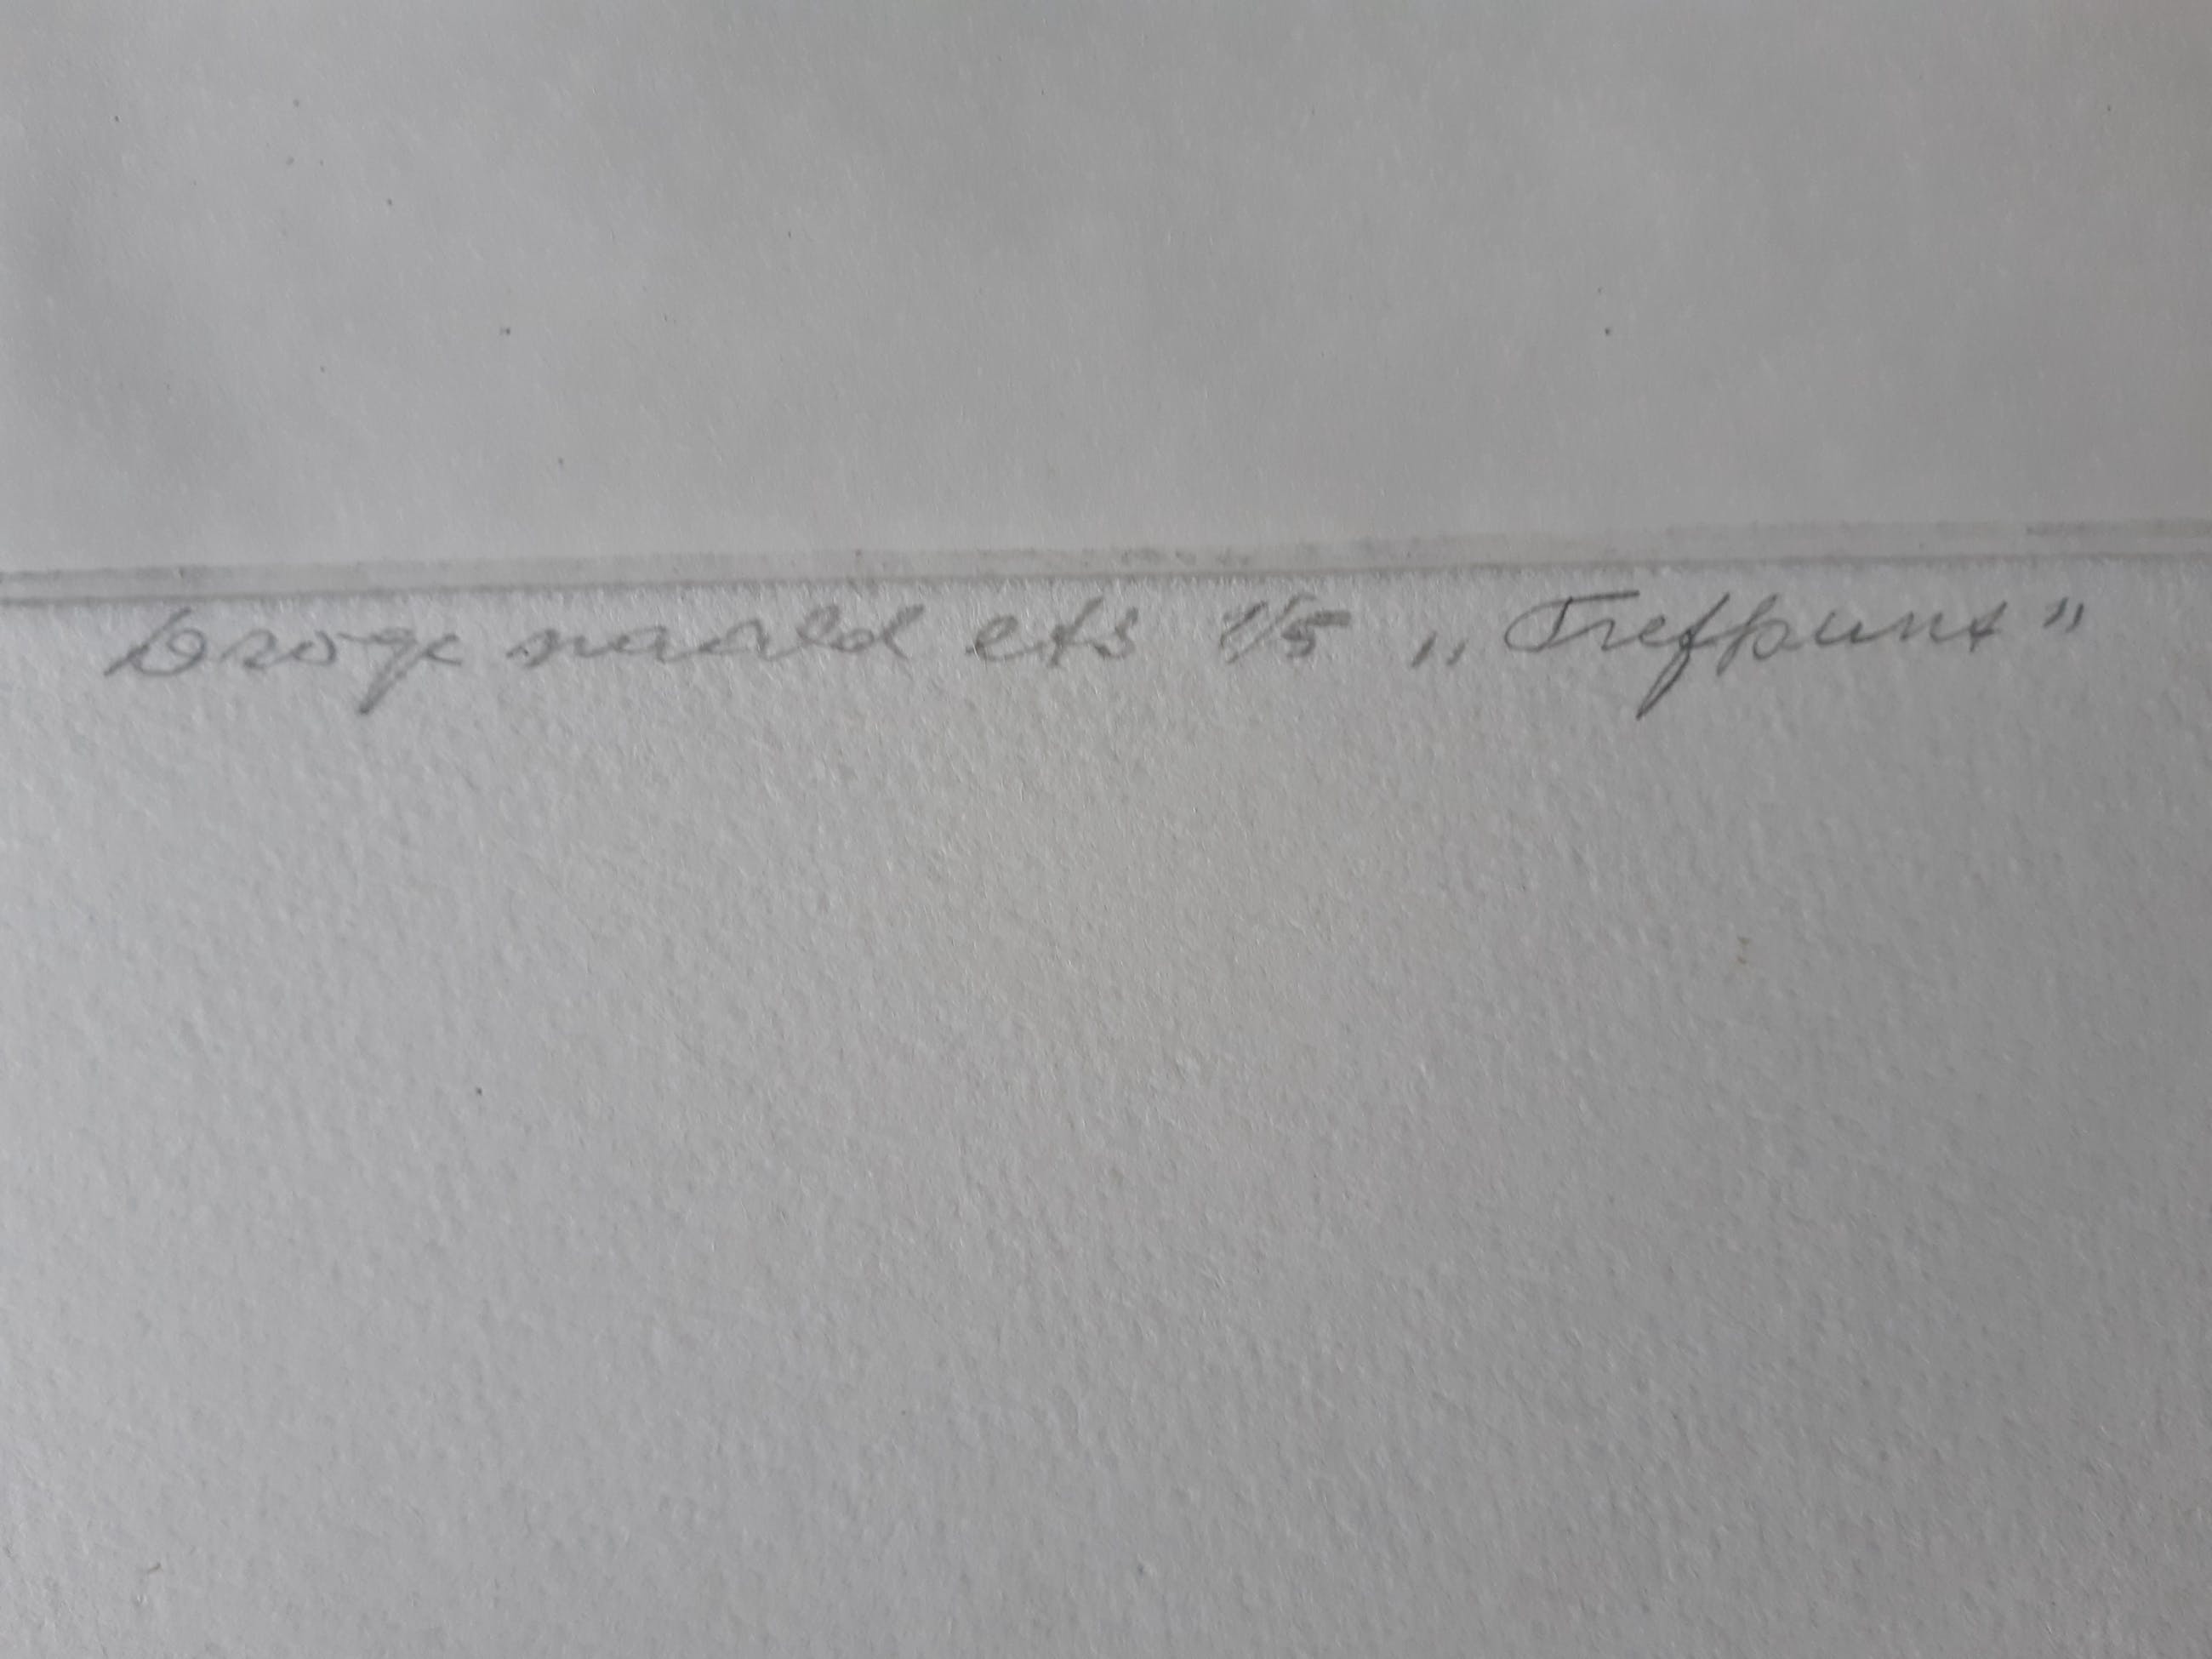 Droge naald ets 1/5 „Trefpunt”